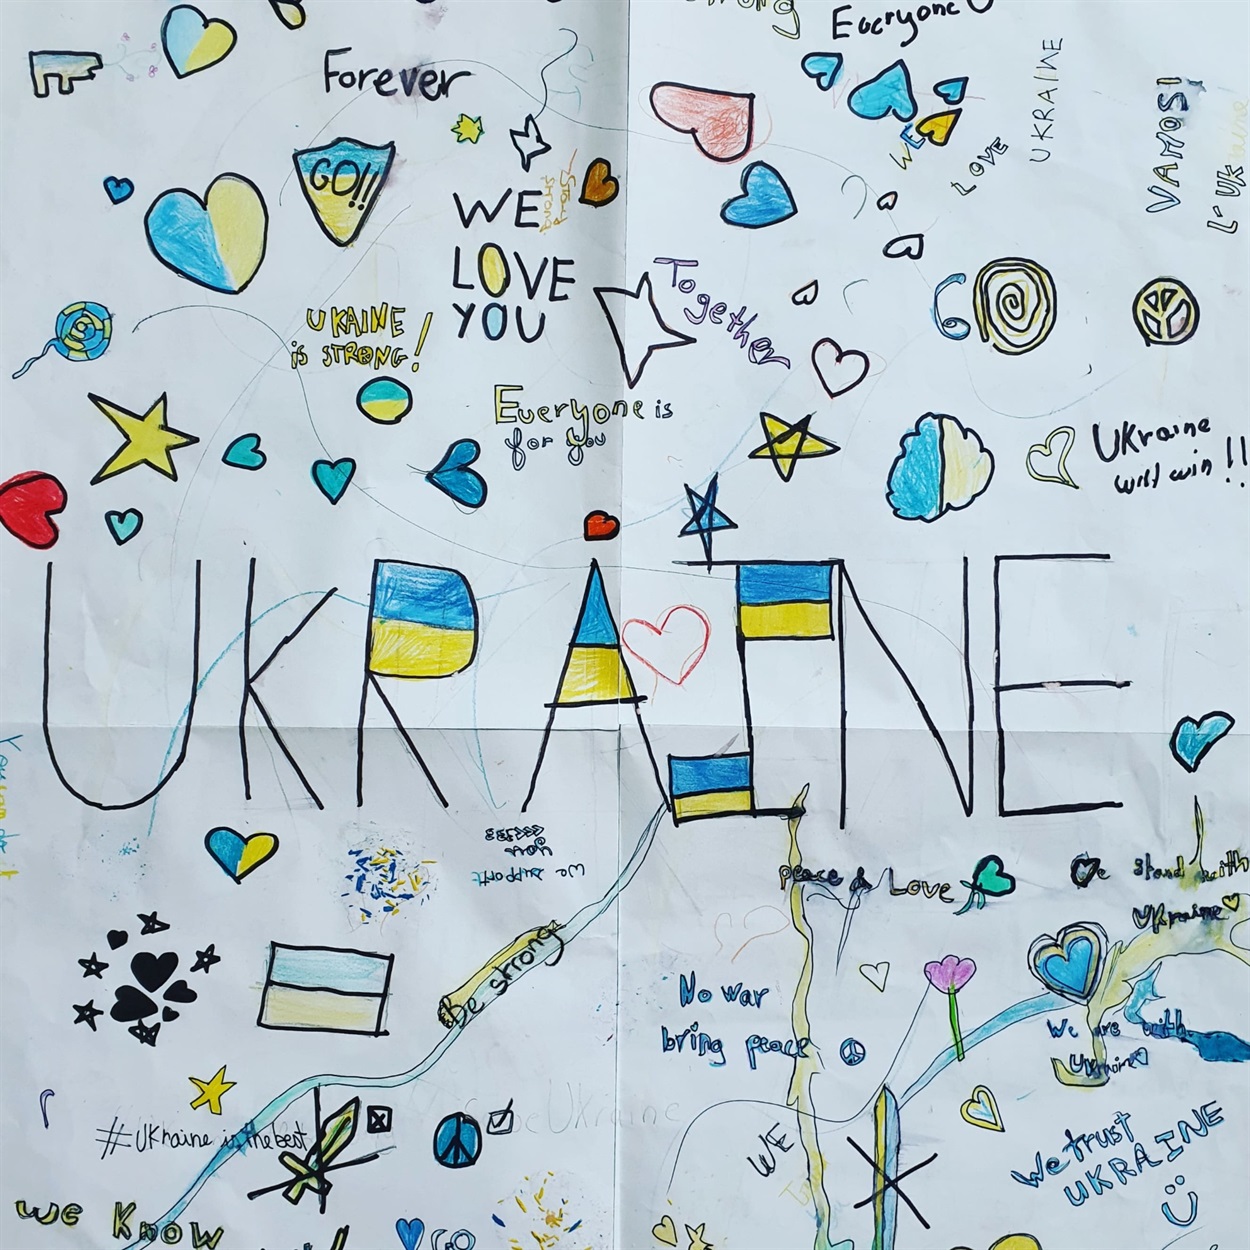 Strong
Everyone
Forever
UKRAINE
VAMOS!
GO!!
WE
LOVE
WE
LOVE
YOU
Together
UKAINE
is STRONG!
GO
Everyone is
for you
Ukraine
will win !!
UKRAINE
we support
you
peace & Love
We stand with
Ukraine
Be strong
No war
bring peace
We are with
Ukraine
#Ukraine is the best
Ukraine
WE
We trust
UKRAINE
We Know
GO